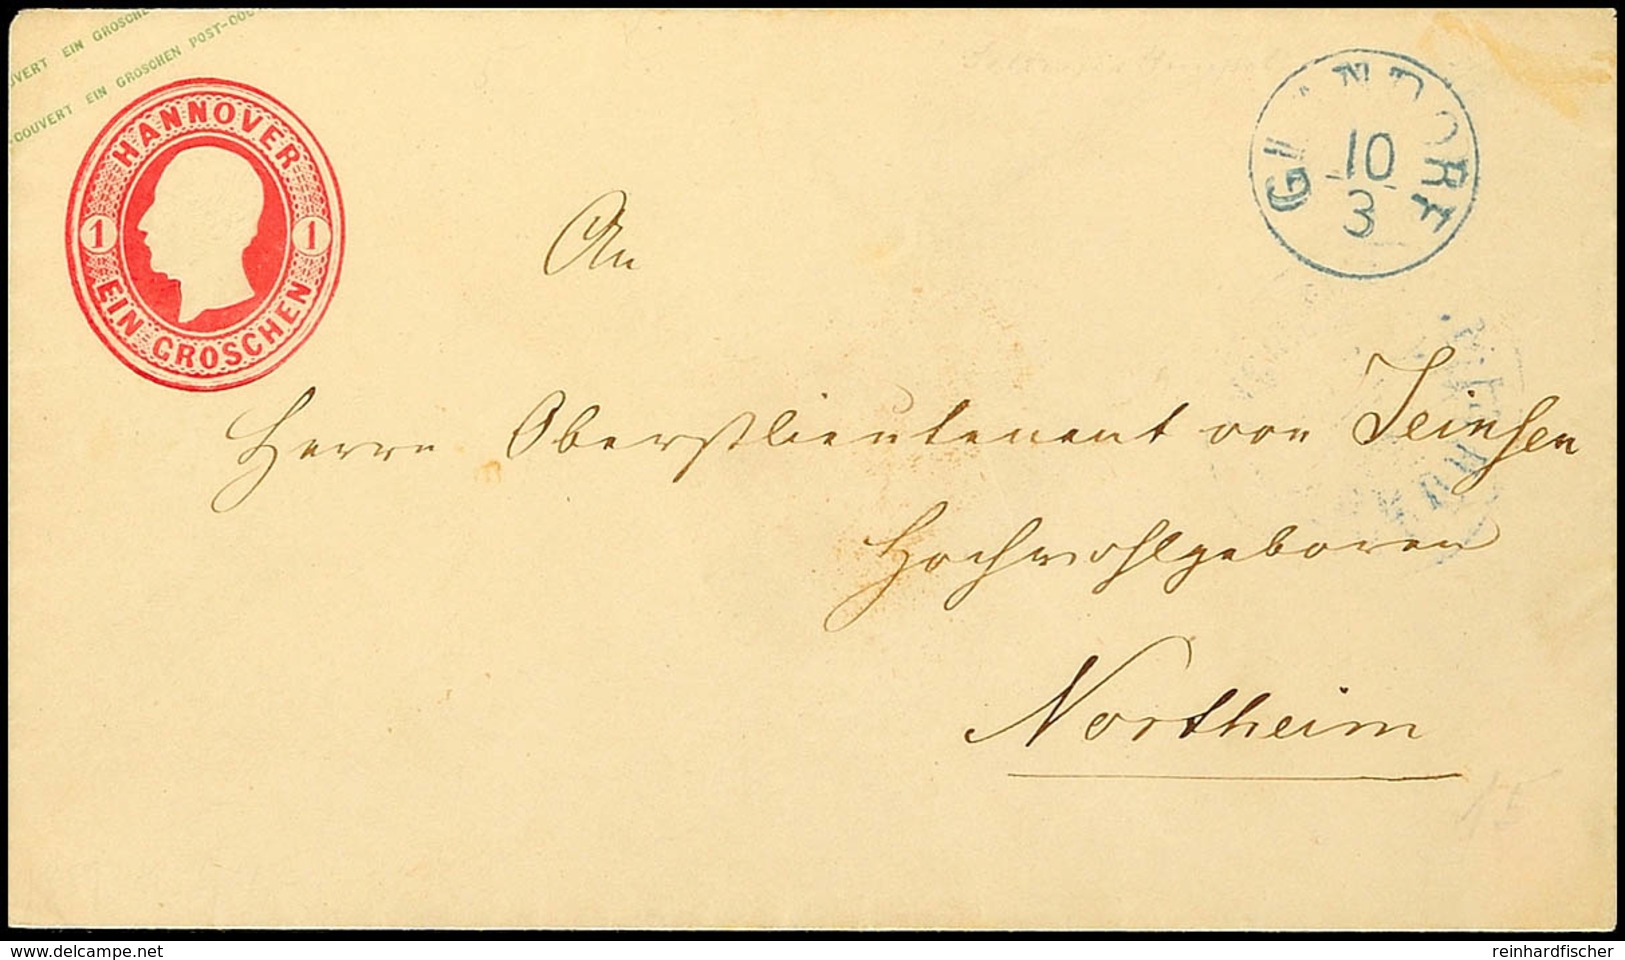 COUVERT EIN GROSCHEN
COUVERT EIN GROSCHEN POST-COUV
HANNOVER
1 1
EIN GROSCHEN
GLANDORF
10
3
An
Herrn Oberstlieutenant von Jeinsen
Hochwohlgeboren
Northeim
15
www.delcampe.net
reinhardfischer